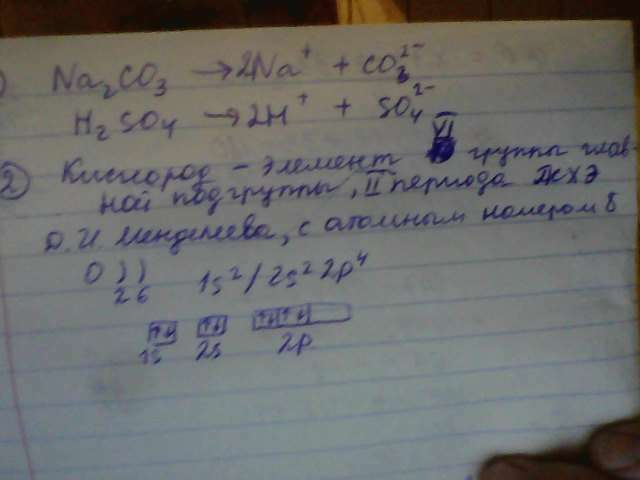 )
Na₂CO₃ → 2Na⁺ + CO₃²⁻
H₂SO₄ → 2H⁺ + SO₄²⁻
2 Кислород - элемент VI группы глав-
ной подгруппы, II периода ПСХЭ
Д. И. Менделеева, с атомным номером 8
O ) ) 1s² / 2s² 2p⁴
2 6
↑↓ ↑↓ ↑↓ ↑↓
1s 2s 2p